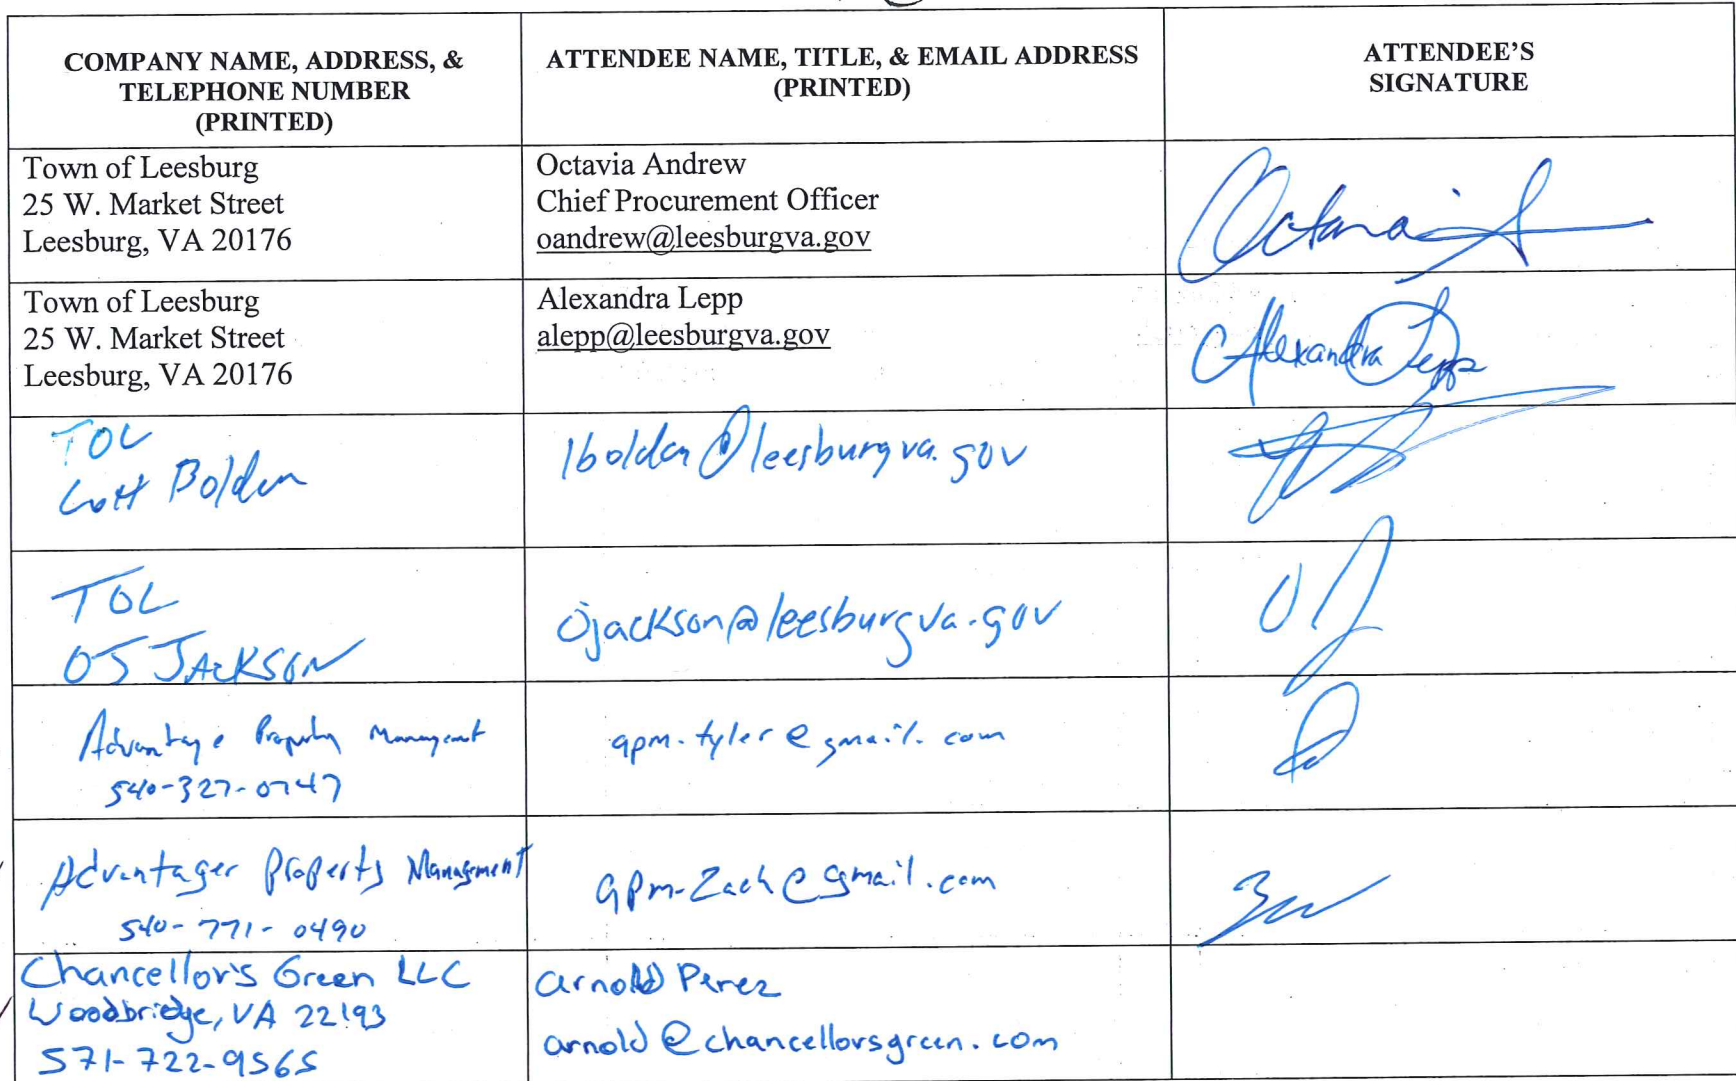 COMPANY NAME, ADDRESS, &
TELEPHONE NUMBER
(PRINTED)
ATTENDEE NAME, TITLE, & EMAIL ADDRESS
(PRINTED)
ATTENDEE'S
SIGNATURE
Town of Leesburg
25 W. Market Street
Leesburg, VA 20176
Octavia Andrew
Chief Procurement Officer
oandrew@leesburgva.gov
Town of Leesburg
25 W. Market Street
Leesburg, VA 20176
Alexandra Lepp
alepp@leesburgva.gov
Alexandra Lepp
TOL
Bolden
lbolden@leesburgva.gov
TOL
OJ JACKSON
ojackson@leesburgva.gov
OJ
Advantage Property Management
540-327-0747
apm.tyler@gmail.com
Advantager Property Management
540-771-0490
apm-Zach@gmail.com
Chancellor's Green LLC
Woodbridge, VA 22193
571-722-9565
arnold Perez
arnold@chancellorsgreen.com